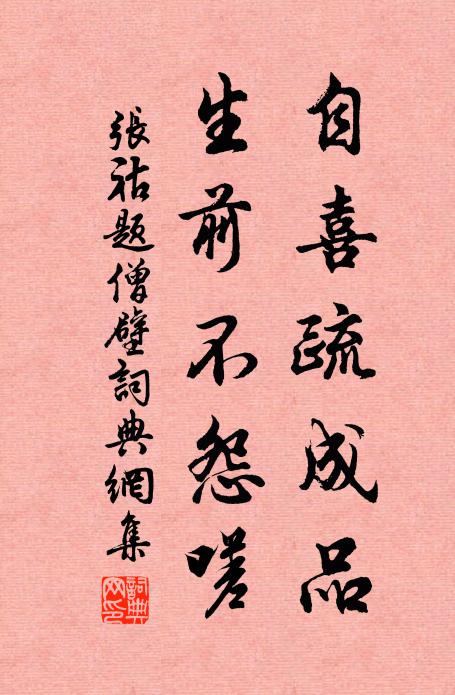 自喜疏成品
生前不怨嗟
張祜題僧壁詞典網集
詞典網印